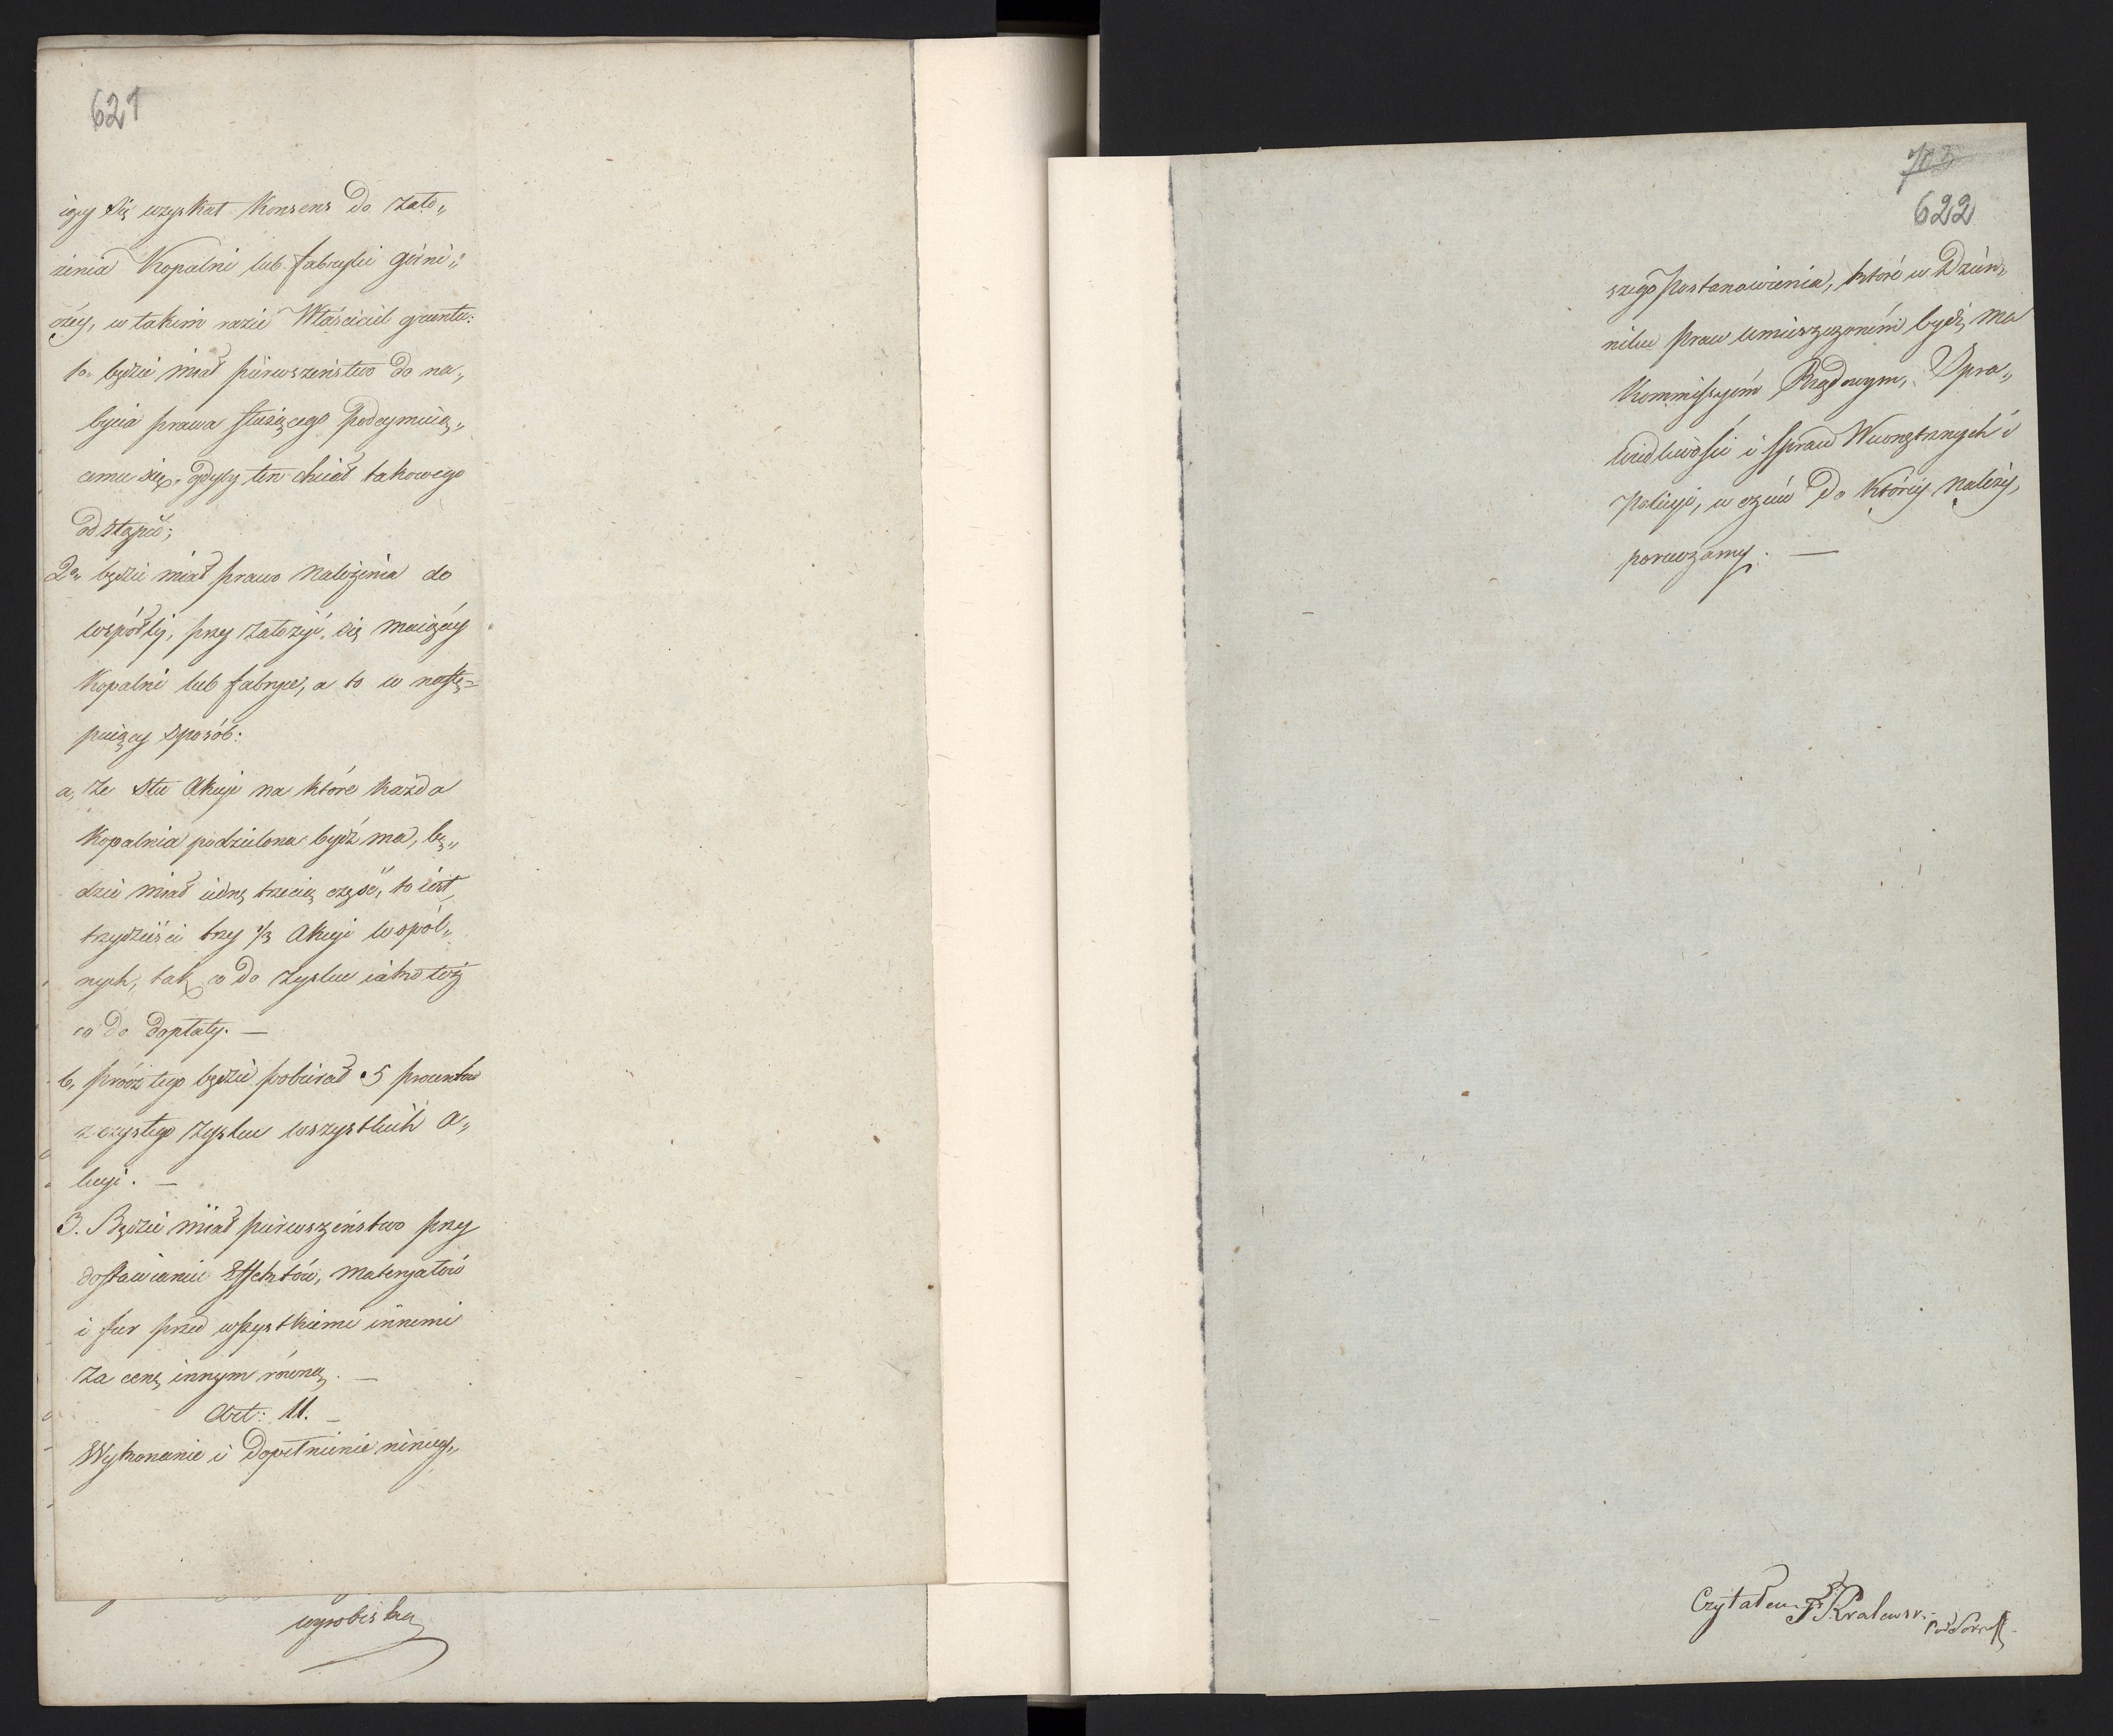 621
iący się uzyskał Konsens do zało„
żenia Kopalni lub fabryki górni„
czéy, w takim razie Właściciel gruntu:
1o będzie miał piérwszeństwo do na„
bycia prawa służącego podeymuią„
cemu się, gdyby ten chciał takowego
odstąpić;
2o będzie miał prawo należenia do
wspołki, przy założyć się maiącéy
Kopalni lub fabryce, a to w nastę=
puiący sposób:
a, Ze stu Akcyi na które każda
Kopalnia podzielona bydź ma, bę„
dzie miał iedną trzecią część, to iest
trzydzieści trzy 1/3 Akcyi wspól„
nych, tak co do zysku iako też
co do dopłaty. —
b, prócz tego będzie pobiérał 5 procentów
z czystego zysku wszystkich A„
kcyi. —
3. Będzie miał piérwszeństwo przy
dostawianiu Effektów, materyałów
i fur przed wszystkiemi innemi
za cenę innym równą. —
Art: 11. —
Wykonanie i dopełnienie niniey„
wyrobiska
703
622
szego Postanowienia, które w Dzien„
niku praw umieszczoném bydź ma
Kommissyom Rządowym, Spra„
wiedliwości i Spraw Wewnętrznych i
Policyi, w czém do któréy należy,
poruczamy. —
Czytałem